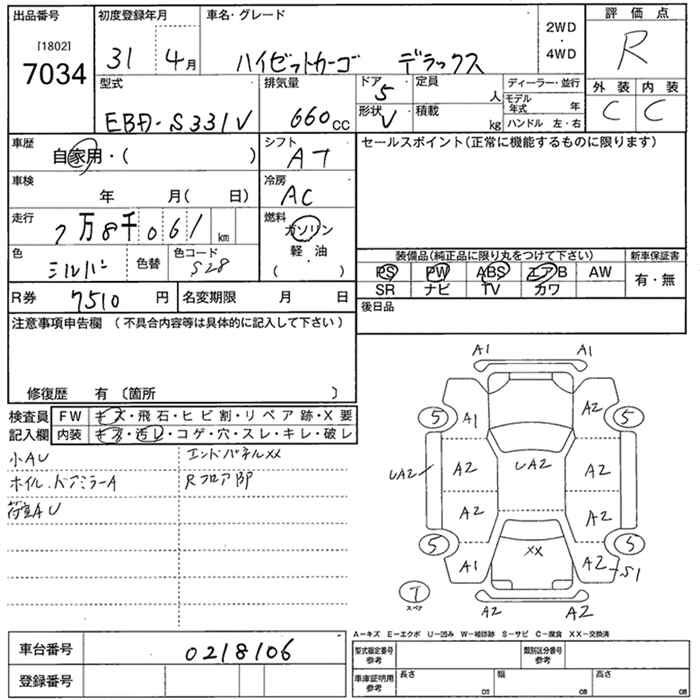 出品番号
[1802]
7034
初度登録年月
31 4月
車名・グレード
ハイゼットカーゴ デラックス
2WD
・
4WD
評価点
R
外装 内装
C C
型式
EBD-S331V
排気量
660cc
ドア
5
形状
V
定員
人
積載
kg
ディーラー・並行
モデル年式 年
ハンドル 左・右
車歴
自家用・( )
シフト
AT
セールスポイント(正常に機能するものに限ります)
車検
年 月( 日)
冷房
AC
走行
7万8千061km
燃料
ガソリン
軽・油
( ・ )
色
シルバー
色替
色コード
S28
装備品(純正品に限り丸をつけて下さい)
PS PW ABS エアB AW
SR ナビ TV カワ
新車保証書
有・無
R券
7510円
名変期限 月 日
後日品
注意事項申告欄 (不具合内容等は具体的に記入して下さい)
修復歴 有 (箇所 )
検査員
記入欄
FW キズ・飛石・ヒビ割・リペア跡・X要
内装 キズ・汚レ・コゲ・穴・スレ・キレ・破レ
小AU
エンドパネルXX
ホイル、ドアミラーA
Rフロア部
荷室AU
A1 A1
5 A1 A2 5
UA2 A2 UA2 A2
A2 A2
5 A1 XX A2 S1 5
T
スペア
A2 A2
車台番号
0218106
登録番号
A-キズ E-エクボ U-凹み W-補修跡 S-サビ C-腐食 XX-交換済
型式指定番号
参考
類別区分番号
参考
車庫証明用
参考
長さ 07
幅 08
高さ 08